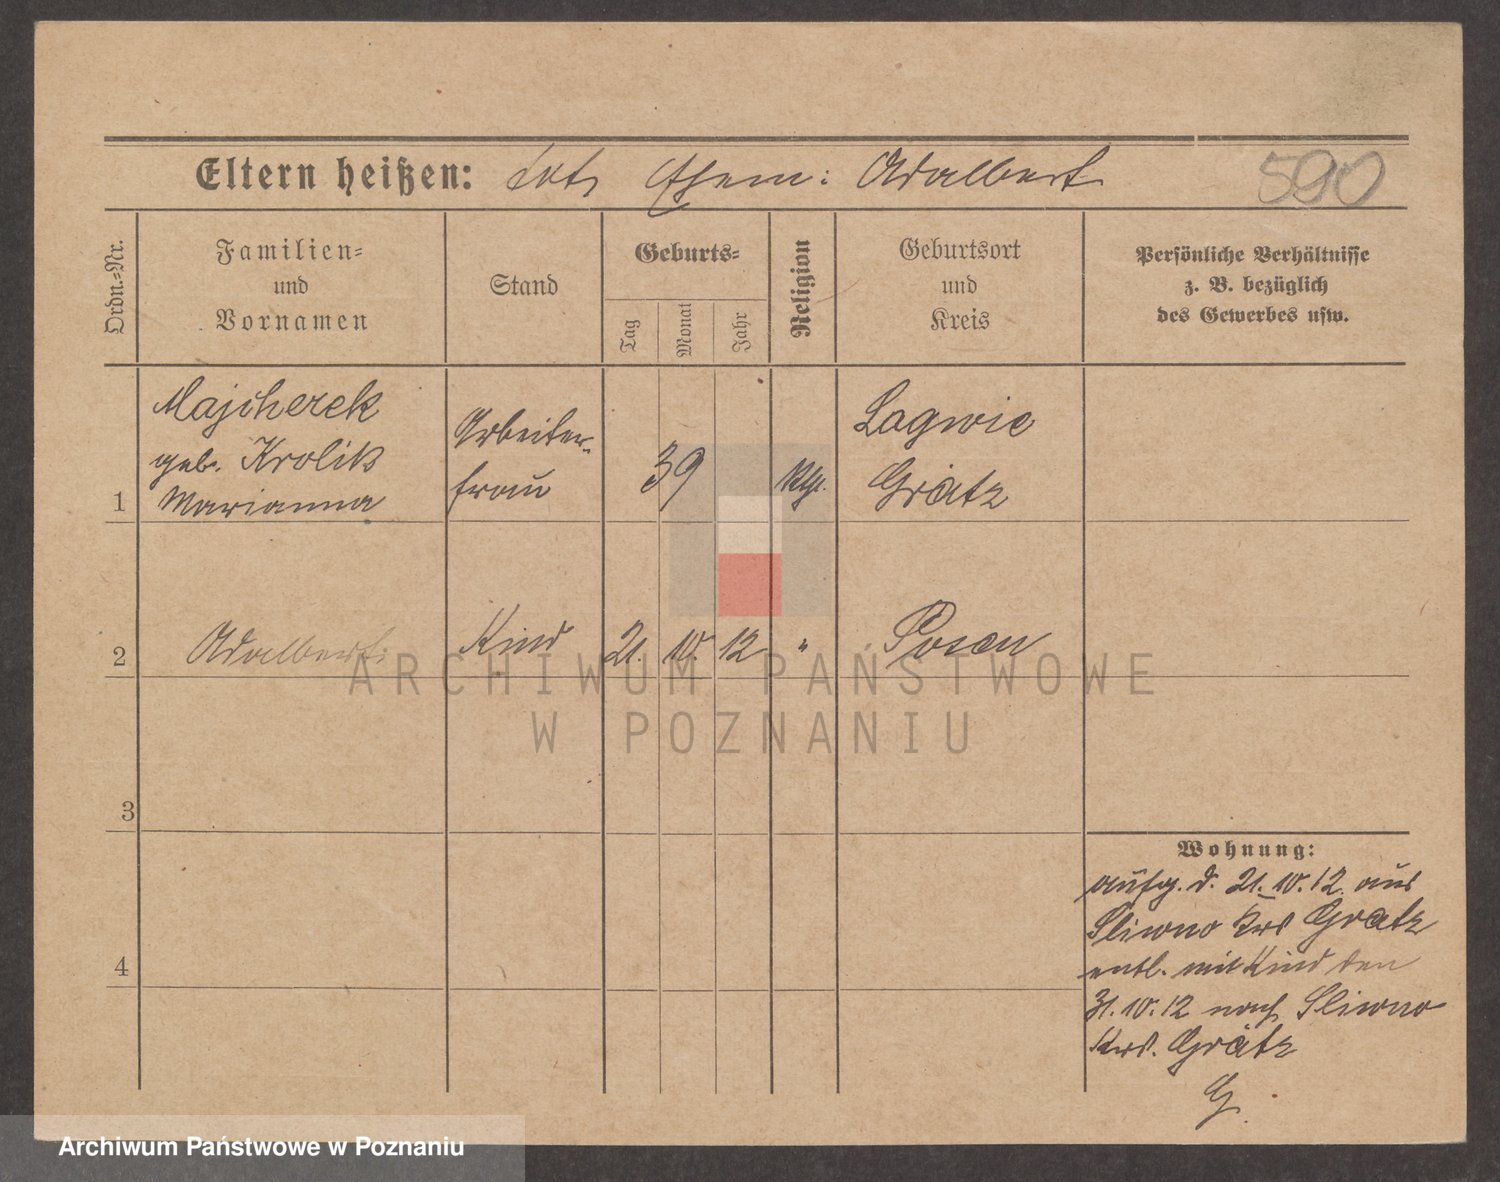 Eltern heißen: tot, Ehem: Adalbert
590
Ordn.-Nr.
Familien-
und
Vornamen
Stand
Geburts-
Tag
Monat
Jahr
Religion
Geburtsort
und
Kreis
Persönliche Verhältnisse
z. B. bezüglich
des Gewerbes usw.
1
Majcherek
geb. Krolik
Marianna
Arbeiter-
frau
39
ktl.
Lagwic
Grätz
2
Adalbert
Kind
21. 10. 12
"
Posen
3
4
Wohnung:
aufg. d. 21. 10. 12 aus
Sliwno Krs Grätz
entl. mit Kind den
31. 10. 12 nach Sliwno
Krs. Grätz
G.
ARCHIWUM PAŃSTWOWE
W POZNANIU
Archiwum Państwowe w Poznaniu